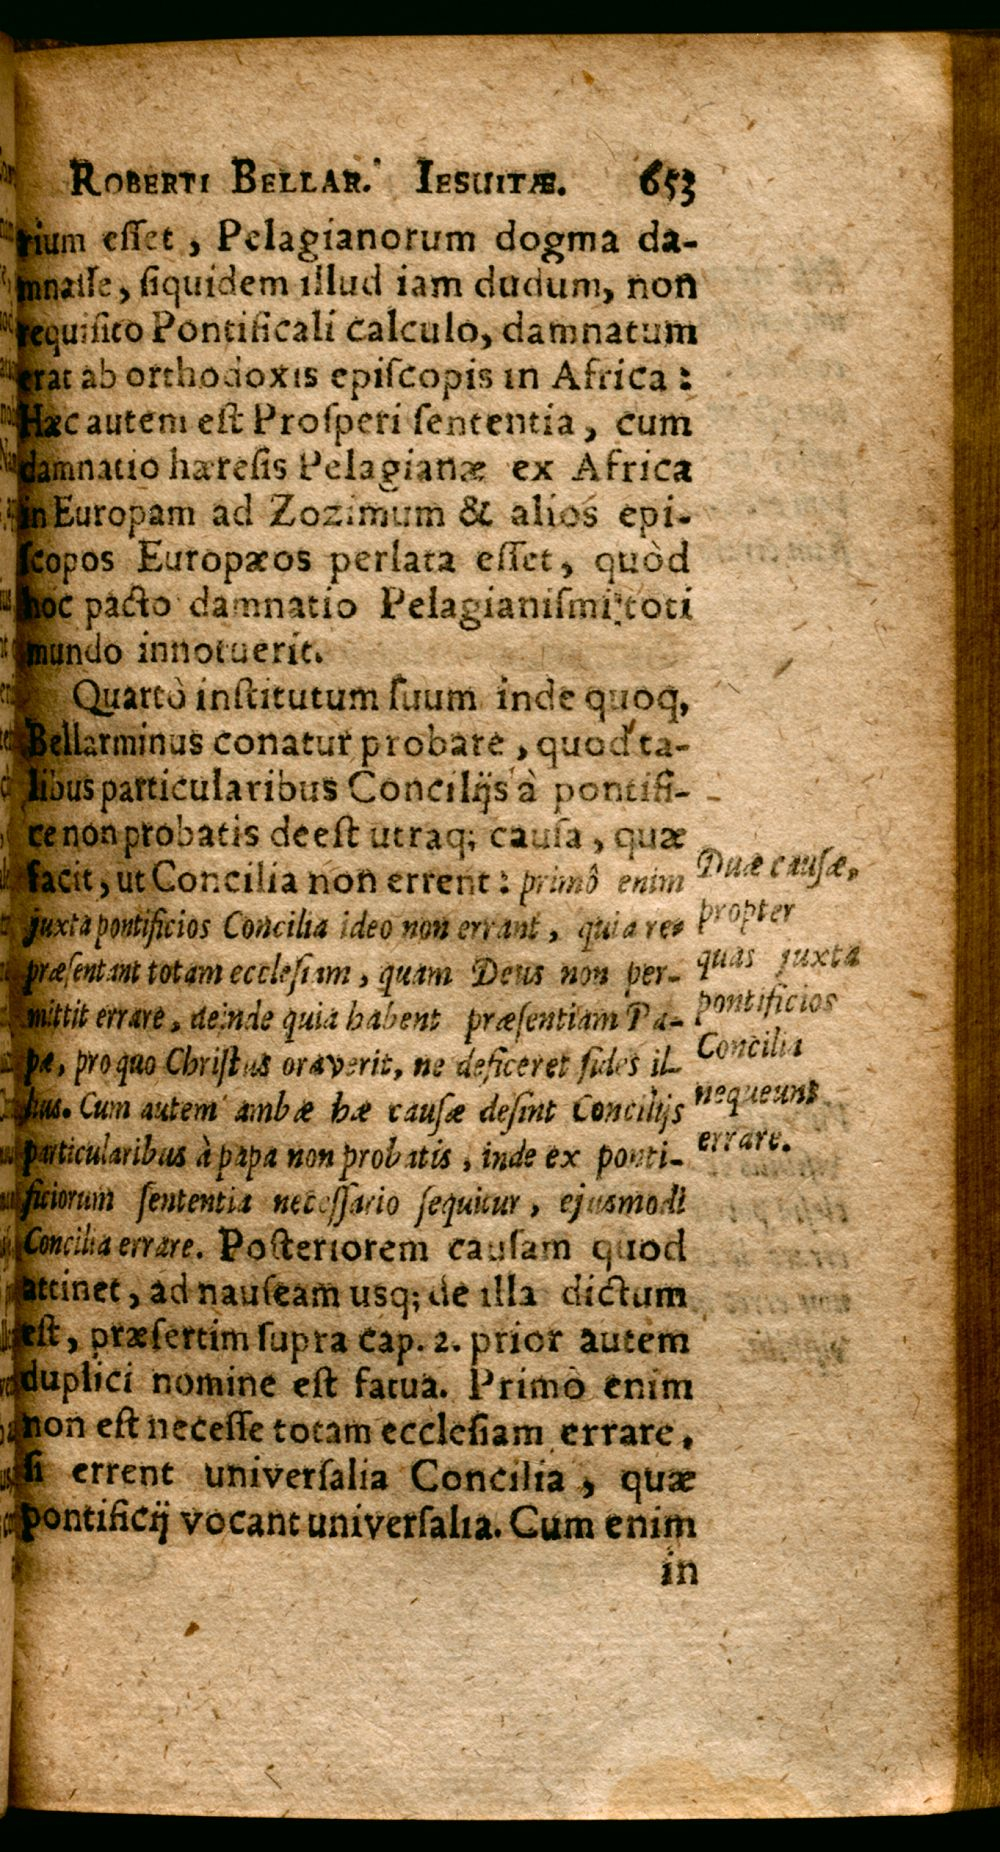 ROBERTI BELLAR. IESUITÆ. 653
rium eſſet, Pelagianorum dogma da-
mnaſſe, ſiquidem illud iam dudum, non
requiſito Pontificali calculo, damnatum
erat ab orthodoxis epiſcopis in Africa:
Hæc autem eſt Proſperi ſententia, cum
damnatio hæreſis Pelagianæ ex Africa
in Europam ad Zozimum & alios epi-
ſcopos Europæos perlata eſſet, quòd
hoc pacto damnatio Pelagianiſmi toti
mundo innotuerit.
Quartò inſtitutum ſuum inde quoq,
Bellarminus conatur probare, quod ta-
libus particularibus Concilijs à pontifi-
ce non probatis deeſt utraq; cauſa, quæ
facit, ut Concilia non errent: primô enim
juxta pontificios Concilia ideo non errant, quia re-
præſentant totam eccleſiam, quam Deus non per-
mittit errare, deinde quia habent præſentiam Pa-
pæ, pro quo Chriſtus oraverit, ne deficeret fides il-
lius. Cum autem ambæ hæ cauſæ deſint Concilijs
particularibus à papa non probatis, inde ex ponti-
ficiorum ſententia neceſſario ſequitur, ejusmodi
Concilia errare. Poſteriorem cauſam quod
attinet, ad nauſeam usq; de illa dictum
eſt, præſertim ſupra cap. 2. prior autem
duplici nomine eſt fatua. Primò enim
non eſt neceſſe totam eccleſiam errare,
ſi errent univerſalia Concilia, quæ
pontificij vocant univerſalia. Cum enim
in
Duæ cauſæ,
propter
quas juxta
pontificios
Concilia
nequeunt
errare.